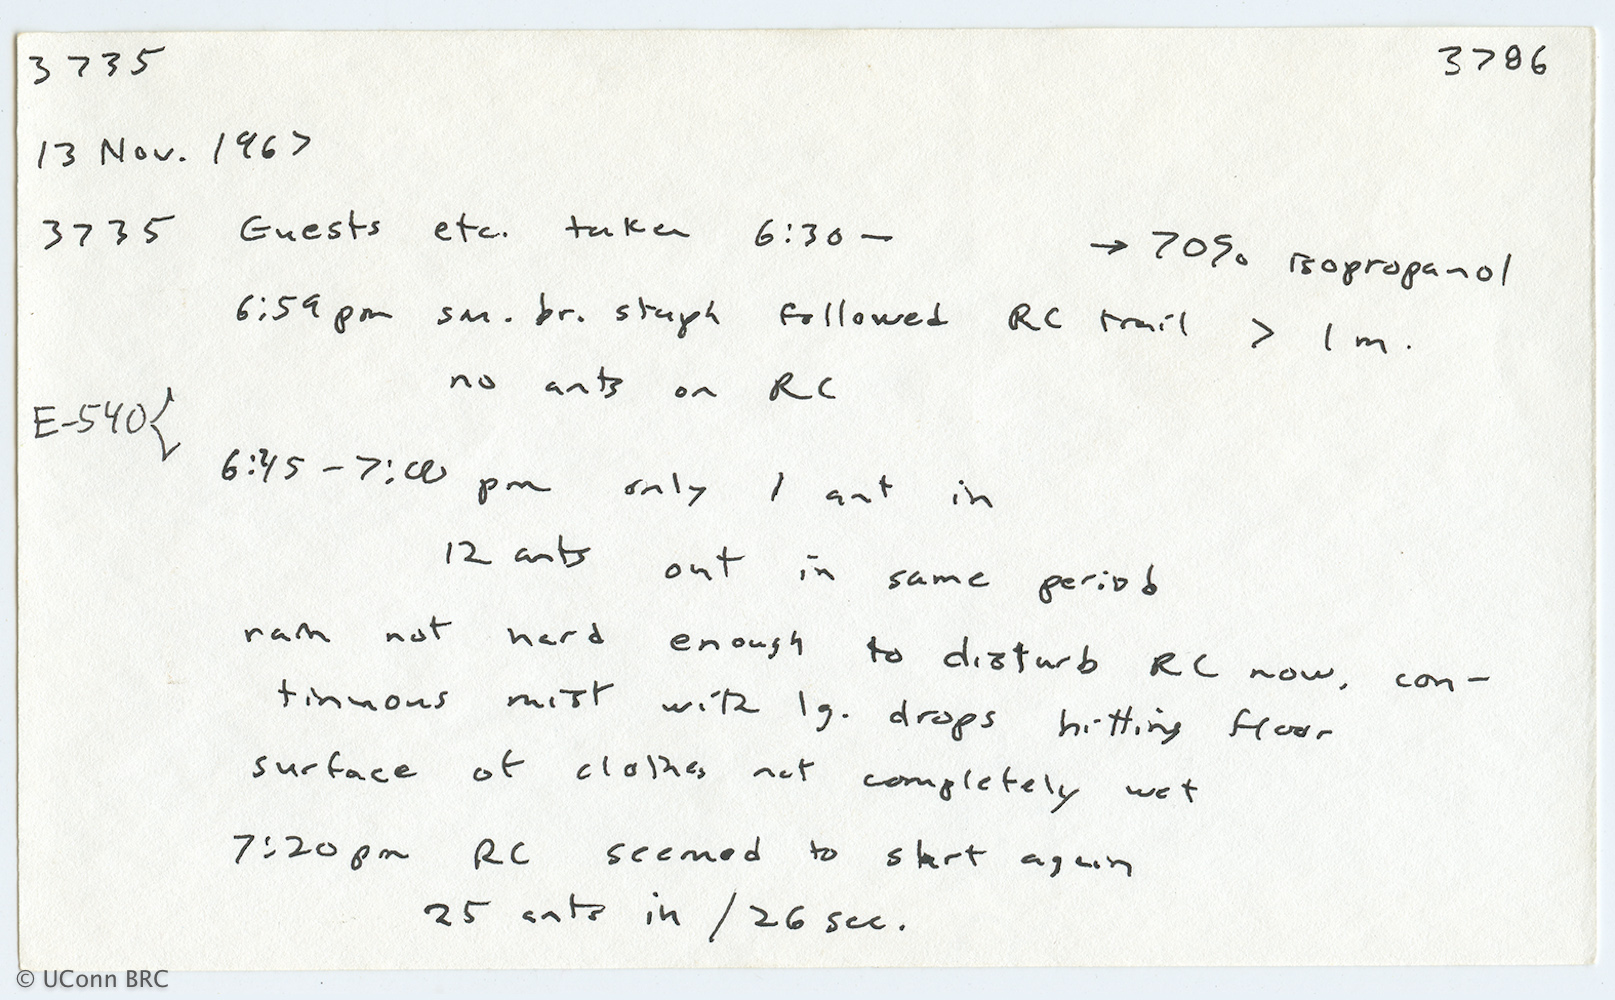 3735 3786
13 Nov. 1967
3735 Guests etc. taken 6:30 — → 70% isopropanol
6:59 pm sm. br. staph followed RC trail > 1 m.
no ants on RC
E-540{
6:45 – 7:00 pm only 1 ant in
12 ants out in same period
rain not hard enough to disturb RC now, con-
tinuous mist with lg. drops hitting floor
surface of clothes not completely wet
7:20 pm RC seemed to start again
25 ants in / 26 sec.
© UConn BRC